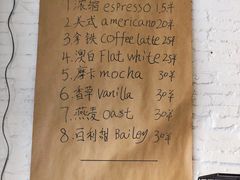 1.浓缩 espresso 15¥
2.美式 americano 20¥
3.拿铁 coffee latte 25¥
4.澳白 Flat white 25¥
5.摩卡 mocha 30¥
6.香草 vanilla 30¥
7.燕麦 oast 30¥
8.百利甜 Bailey 30¥